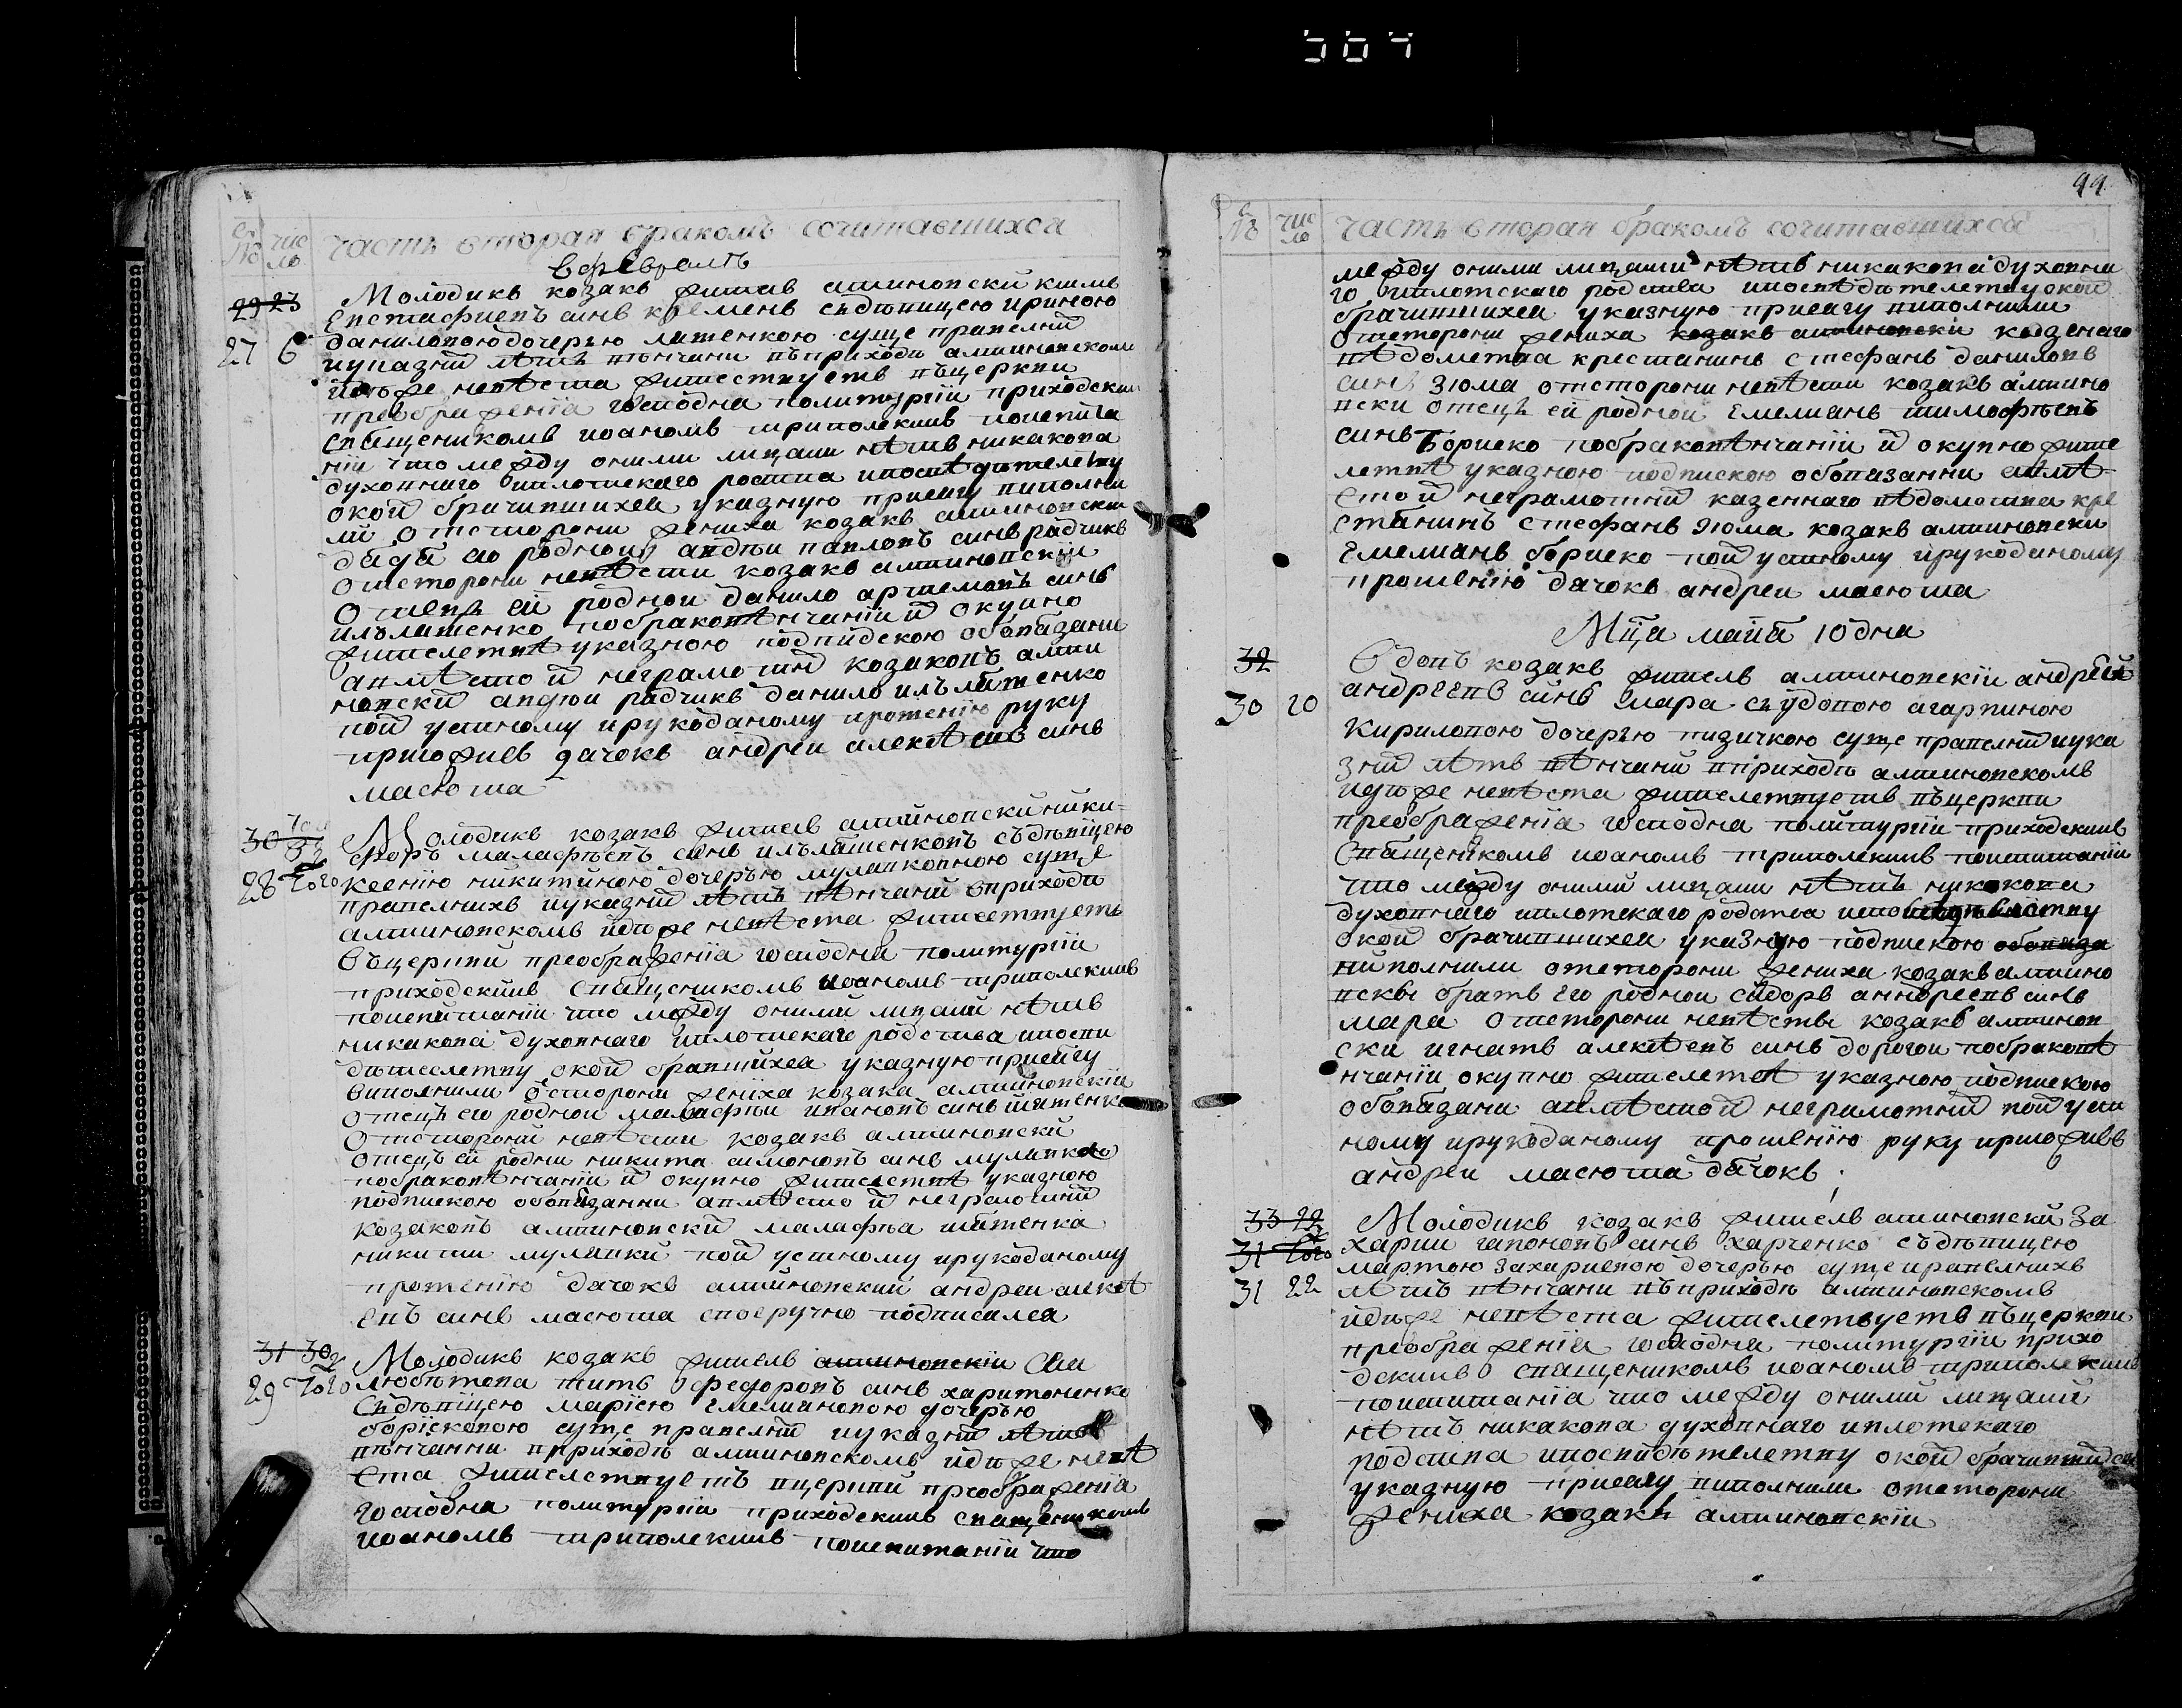 569
Сч №
число
часть вторая браком сочитавшихся
в феврале
29 23
Молодикъ козакъ житель алтиновский клим
Евстафиевъ синъ кремень съдѣвицею ириною
27 6
даниловою дочерью латенкою суще правелний
иуказний лѣтъ вѣнчани въприходѣ алтиновском
идѣже невѣста жителствуетъ въцеркви
преображенія господня политургіи приходским
священикомъ иоаномъ триполскимъ
ніи что между оними лицами нѣтъ никакова
духовнаго иплотскаго роства ипосвѣдителству
окой брачившихся указную присягу виполни
ли отсторони жениха козакъ алтиновски
дядя его родной авдѣи павловъ синъ радчикъ
отсторони невѣсти козакъ алтиновский
отецъ ей родной данило артемовъ синъ
илляшенко побраковѣнчаніи й окупно
жителствѣ указною подпискою обовязани
авмѣсто й неграмотний козаковъ алти
новский авдѣи радчикъ данило илляшенко
пой устному ирукоданому прошенію руку
приложилъ дячокъ андреи алексѣевъ синъ
масюта
30
Молодикъ козакъ житель алтиновский ники-
форъ малафѣевъ синъ илляшенковъ съдѣвицею
28 того
ксенією никитиною дочерью мулявкиною суще
правелнихъ иуказний лѣтъ вѣнчаний вприходѣ
алтиновскомъ идѣже невѣста жителствуетъ
въцеркви преображенія господня политургіи
приходскимъ священикомъ иоаномъ триполскимъ
поиспитаніи что между оними лицами нѣтъ
никакова духовнаго иплотскаго родства ипосви
дѣтелству окой бравшихся указную присягу
виполнили отсторони жениха козака алтиновскіи
отецъ его родной малафѣи ивановъ синъ шатенко
отсторони невѣсти козакъ алтиновски
отецъ ей родни никита симоновъ синъ мулявко
побраковѣнчаніи й окупно жителствѣ указною
подпискою обовязанни авмѣсто й неграмотний
козаковъ алтиновский малафѣа шатенка
никити мулявки пой устному ирукоданому
прошенію дячокъ алтиновский андреи алексѣ
евъ синъ масюта своеручно подписался
31 30
Молодикъ козакъ житель алтиновскіи
29 того
тить федоровъ синъ харитоненко
съдѣвицею марією емелияновою дочерью
борісковою суще правелний иуказний лѣтъ
вѣнчанни вприходѣ алтиновскомъ идѣже невѣ
ста жителствуетъ вцеркви преображенія
господня политургіи приходскимъ священикомъ
иоаномъ триполскимъ поиспитаніи что
99
Сч №
число
часть вторая бракомъ сочитавшихся
между оними лицами нѣтъ никакова духовна
го иплотскаго родства ипосвѣдѣтелству окой
брачившихся указную присягу виполнили
отсторони жениха козакъ алтиновски казенаго
вѣдомства крестянинъ стефанъ даниловъ
синъ зюма отсторони невѣсти козакъ алтино
вски отецъ ей родной емелиянъ тимофѣевъ
синъ бориско побраковѣнчаніи й окупно жите
лствѣ указною подпискою обовязанни авмѣ
сто й неграмотний казеннаго вѣдомства кре
стянинъ стефанъ зюма козакъ алтиновски
емелиянъ бориско пой устному ирукоданому
прошенію дячокъ андреи масюта
Мца маия 10 дня
32
Вдовъ козакъ житель алтиновскіи андрей
30 20
андреевъ синъ мара съ удовою агарпиною
кириловою дочерью пизичкою суще правелний иука
зний лѣтъ вѣнчаний вприходѣ алтиновскомъ
идѣже невѣста жителствуетъ въцеркви
преображенія господня политургіи приходскимъ
священикомъ иоаномъ триполскимъ поиспитаніи
что между оними лицами нѣтъ никакова
духовнаго иплотскаго родства
окой брачившихся указную подпискою обовяза
виполнили отсторони жениха козакъ алтино
вскы братъ его родной сидоръ андреевъ синъ
мара отсторони невѣсты козакъ алтинов
ски игнатъ алексѣевъ синъ дорогои побраковѣ
нчаніи окупно жителствѣ указною подпискою
обовязани авмѣсто й неграмотний пой уст
ному ирукоданому прошенію руку приложивъ
андреи масюта дячокъ
33 22
Молодикъ козакъ житель алтиновскй За
31 того
харии гапоновъ синъ харченко съдѣвицею
мартою захариевою дочерью суще правелнихъ
31 22
лѣтъ вѣнчани въприходѣ алтиновскомъ
идѣже невѣста жителствуетъ въцеркви
преображенія господня политургіи прихо
дскимъ священикомъ иоаномъ триполскимъ
поиспитаніа что между оними лицами
нѣтъ никакова духовнаго иплотскаго
родства ипосвидѣтелству окой брачившийся
указную присягу виполнили отсторони
жениха козакъ алтиновскіи